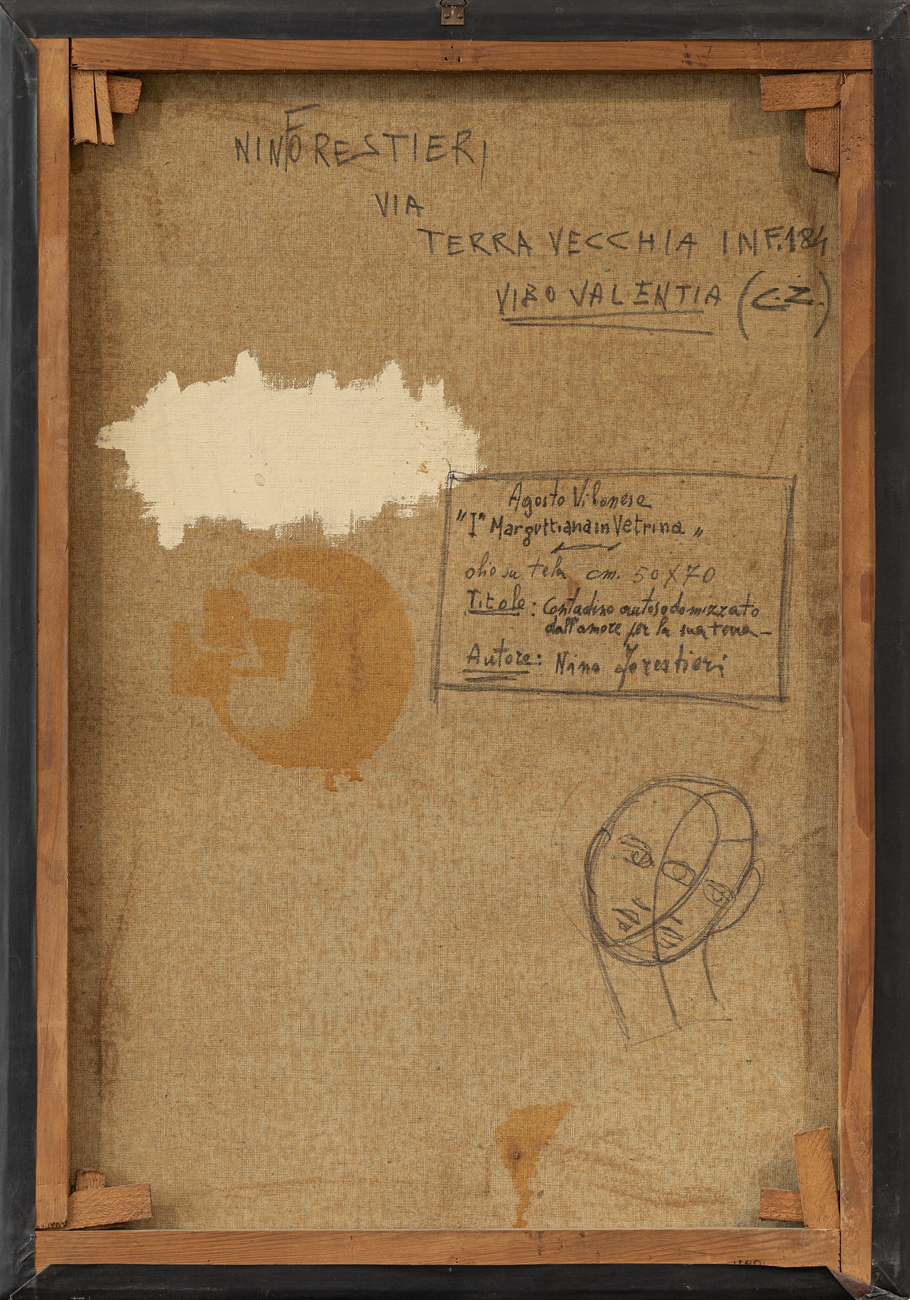 NINO FORESTIERI
VIA
TERRA VECCHIA INF. 184
VIBO VALENTIA (C.Z.)
Agosto Vibonese
"Iª Marguttiana in Vetrina„
olio su tela cm. 50X70
Titolo: Contadino autosodomizzato
dall'amore per la sua terra-
Autore: Nino Forestieri